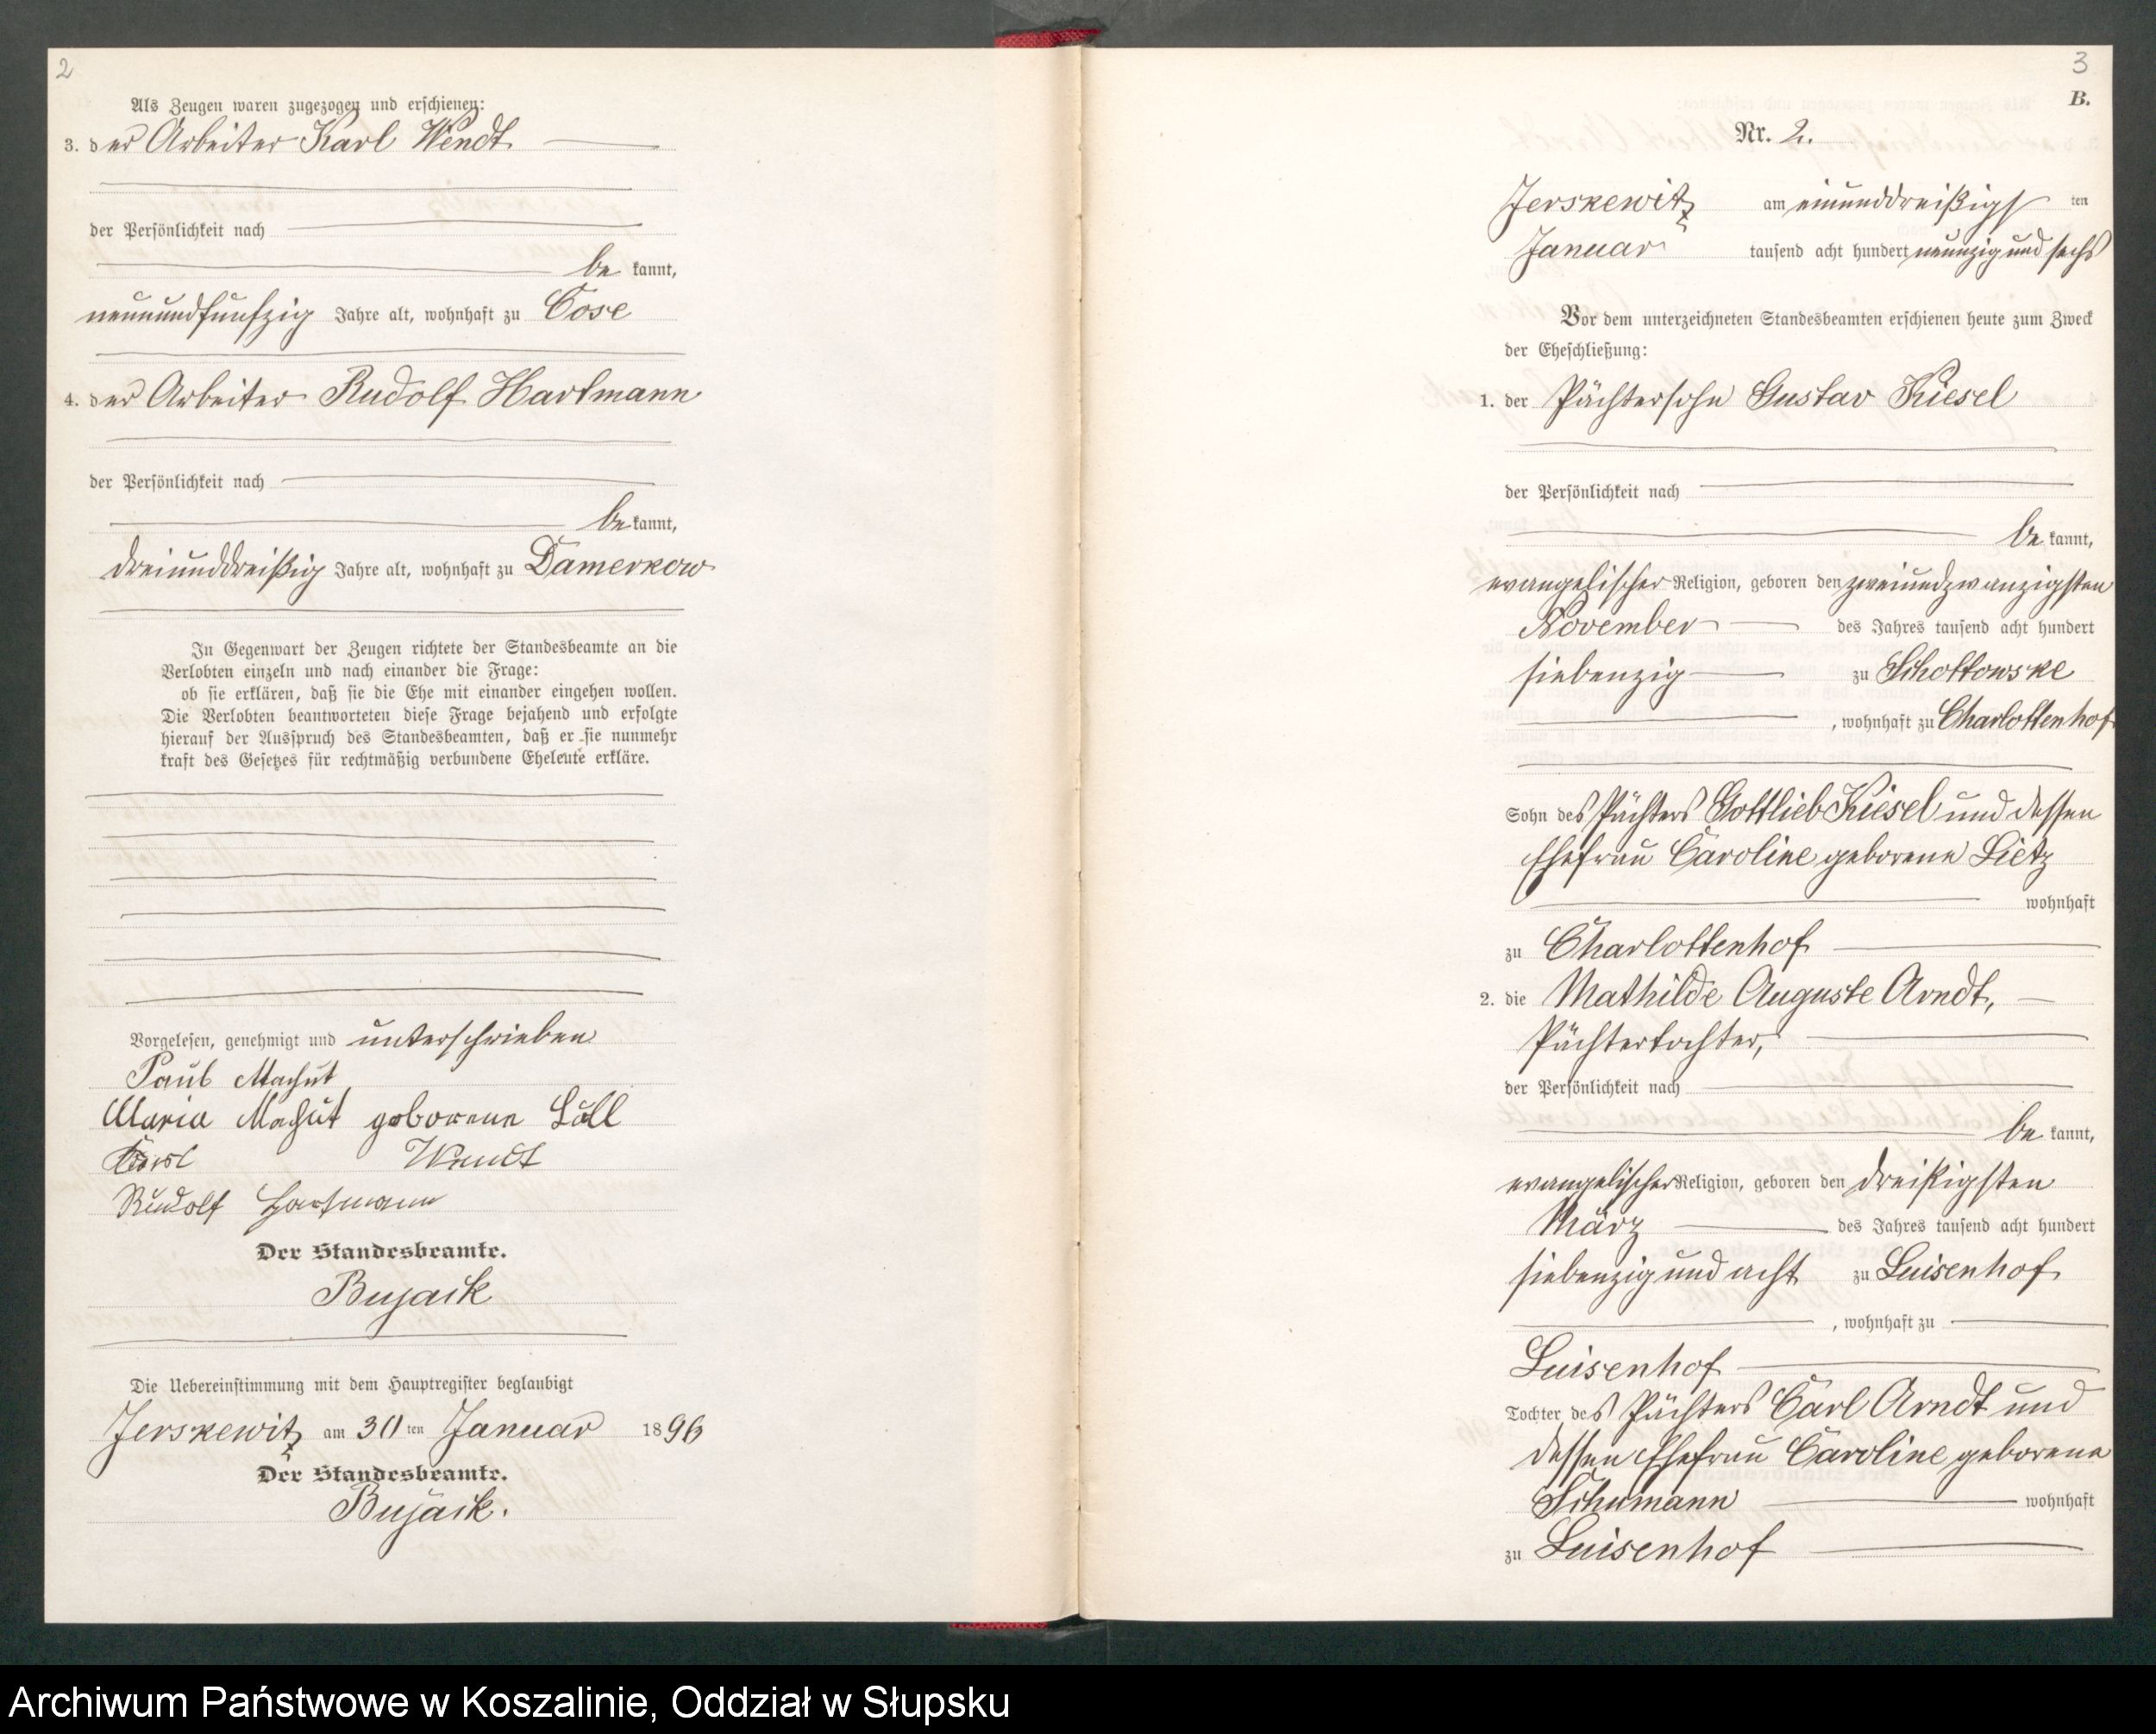 2
Als Zeugen waren zugezogen und erschienen:
3. der Arbeiter Karl Wendt
der Persönlichkeit nach
be kannt,
neunundfünfzig Jahre alt, wohnhaft zu Cose
4. der Arbeiter Rudolf Hartmann
der Persönlichkeit nach
be kannt,
dreiunddreißig Jahre alt, wohnhaft zu Damerkow
In Gegenwart der Zeugen richtete der Standesbeamte an die
Verlobten einzeln und nach einander die Frage:
ob sie erklären, daß sie die Ehe mit einander eingehen wollen.
Die Verlobten beantworteten diese Frage bejahend und erfolgte
hierauf der Ausspruch des Standesbeamten, daß er sie nunmehr
kraft des Gesetzes für rechtmäßig verbundene Eheleute erkläre.
Vorgelesen, genehmigt und unterschrieben
Paul Machut
Maria Machut geborene Löll
Karl Wendt
Rudolf Hartmann
Der Standesbeamte.
Bujack
Die Uebereinstimmung mit dem Hauptregister beglaubigt
Jerskewitz am 30 ten Januar 1896
Der Standesbeamte.
Bujack.
3
B.
Nr. 2.
Jerskewitz am einunddreißigs ten
Januar tausend acht hundert neunzig und sechs
Vor dem unterzeichneten Standesbeamten erschienen heute zum Zweck
der Eheschließung:
1. der Pächtersohn Gustav Kiesel
der Persönlichkeit nach
be kannt,
evangelischer Religion, geboren den zweiundzwanzigsten
November des Jahres tausend acht hundert
siebenzig zu Schottowske
, wohnhaft zu Charlottenhof
Sohn des Pächters Gottlieb Kiesel und dessen
Ehefrau Caroline geborene Lietz
wohnhaft
zu Charlottenhof
2. die Mathilde Auguste Arndt,
Pächtertochter,
der Persönlichkeit nach
be kannt,
evangelischer Religion, geboren den dreißigsten
März des Jahres tausend acht hundert
siebenzig und acht zu Luisenhof
, wohnhaft zu
Luisenhof
Tochter des Pächters Carl Arndt und
dessen Ehefrau Caroline geborene
Schumann wohnhaft
zu Luisenhof
Archiwum Państwowe w Koszalinie, Oddział w Słupsku